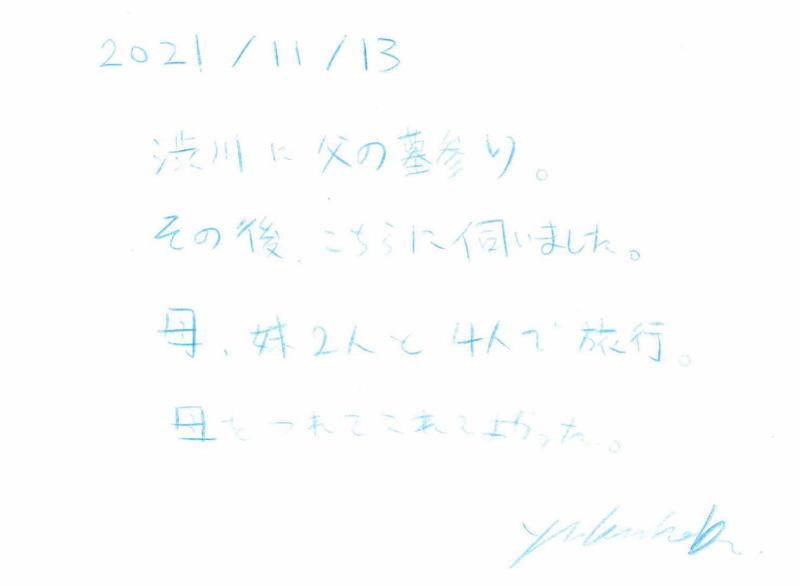 2021/11/13
渋川に父の墓参り。
その後、こちらに伺いました。
母、妹2人と4人で旅行。
母をつれてこれてよかった。